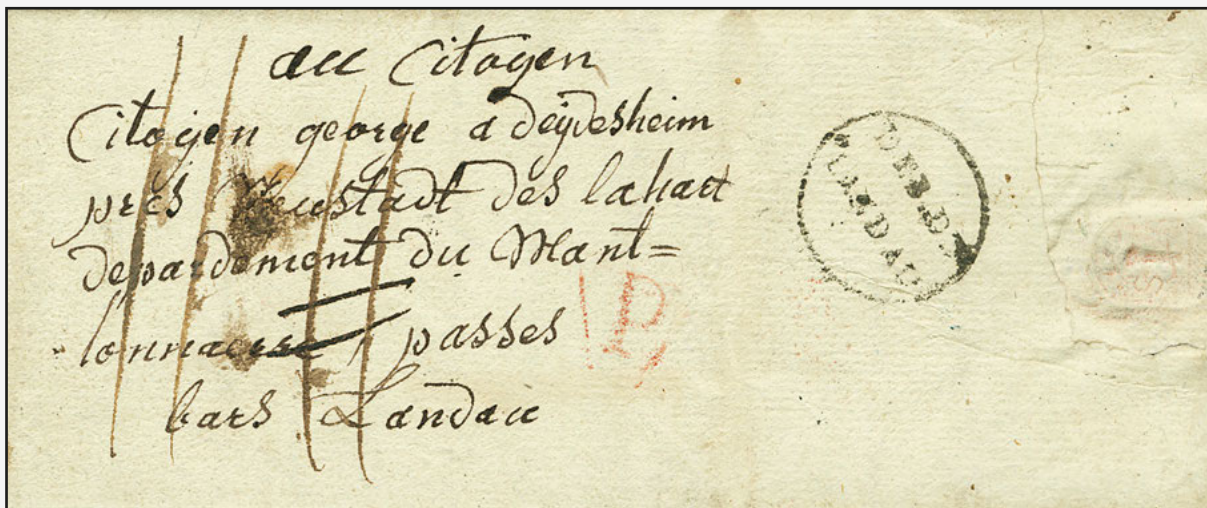 au Citogen
Citogen george a deÿdesheim
près Neustadt des lahart
depardement du Mant=
lonnaerre, passes
bars Landau
DEB.D
LANDAU
P